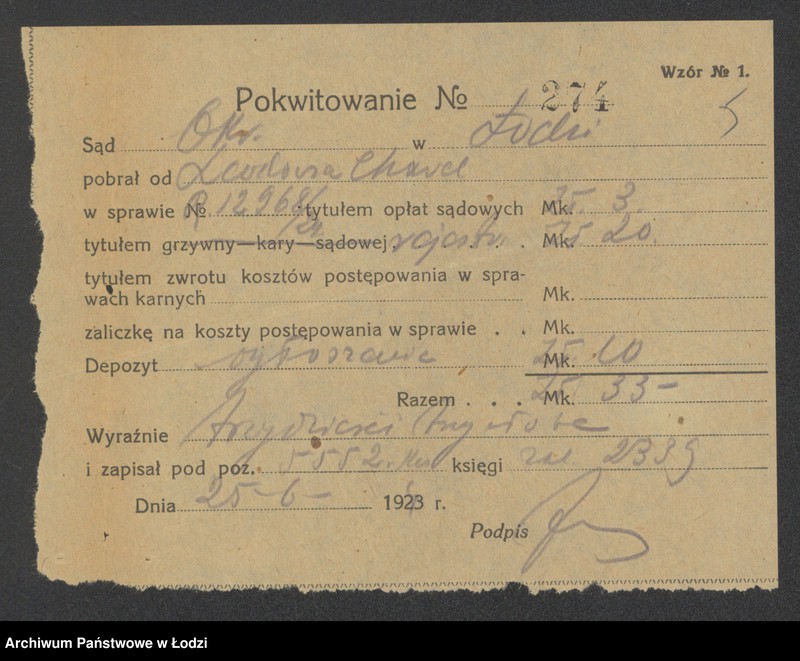 Wzór № 1.
Pokwitowanie № 274
Sąd Okr. w Łodzi
pobrał od Chavel
w sprawie № 12968/24 tytułem opłat sądowych Mk. 3
tytułem grzywny—kary—sądowej rejestr. . . . Mk. 20
tytułem zwrotu kosztów postępowania w spra-
wach karnych Mk.
zaliczkę na koszty postępowania w sprawie . . Mk.
Depozyt ogłoszenie Mk. 10
Razem . . . Mk. 33-
Wyraźnie trzydzieści trzy złote
i zapisał pod poz. 5552 księgi 2339
Dnia 25-6- 1924 r.
Podpis
Archiwum Państwowe w Łodzi